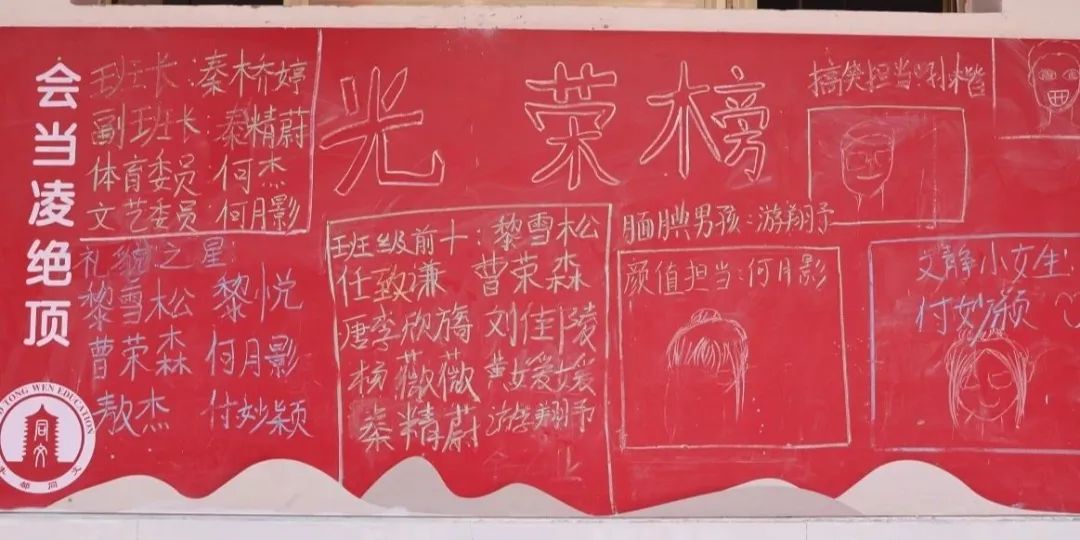 会当凌绝顶
班长:秦林乔婷
副班长:秦精蔚
体育委员:何杰
文艺委员:何月影
礼貌之星:
黎雪松 黎悦
曹荣森 何月影
敖杰 付妙颖
光荣榜
班级前十:黎雪松
任致谦 曹荣森
唐李欣旖 刘佳陵
杨薇薇 黄媛媛
秦精蔚 游翔予
搞笑担当:孙楷
腼腆男孩:游翔予
颜值担当:何月影
文静小女生
付妙颖
TONG WEN EDUCATION
同文